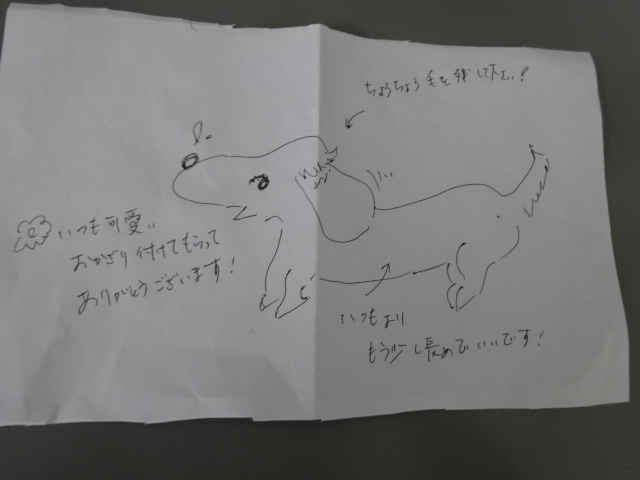 ちょうちょう毛を残して下さい!
いつも可愛い
おかざり付けてもらって
ありがとうございます!
いつもより
もう少し長めでいいです!